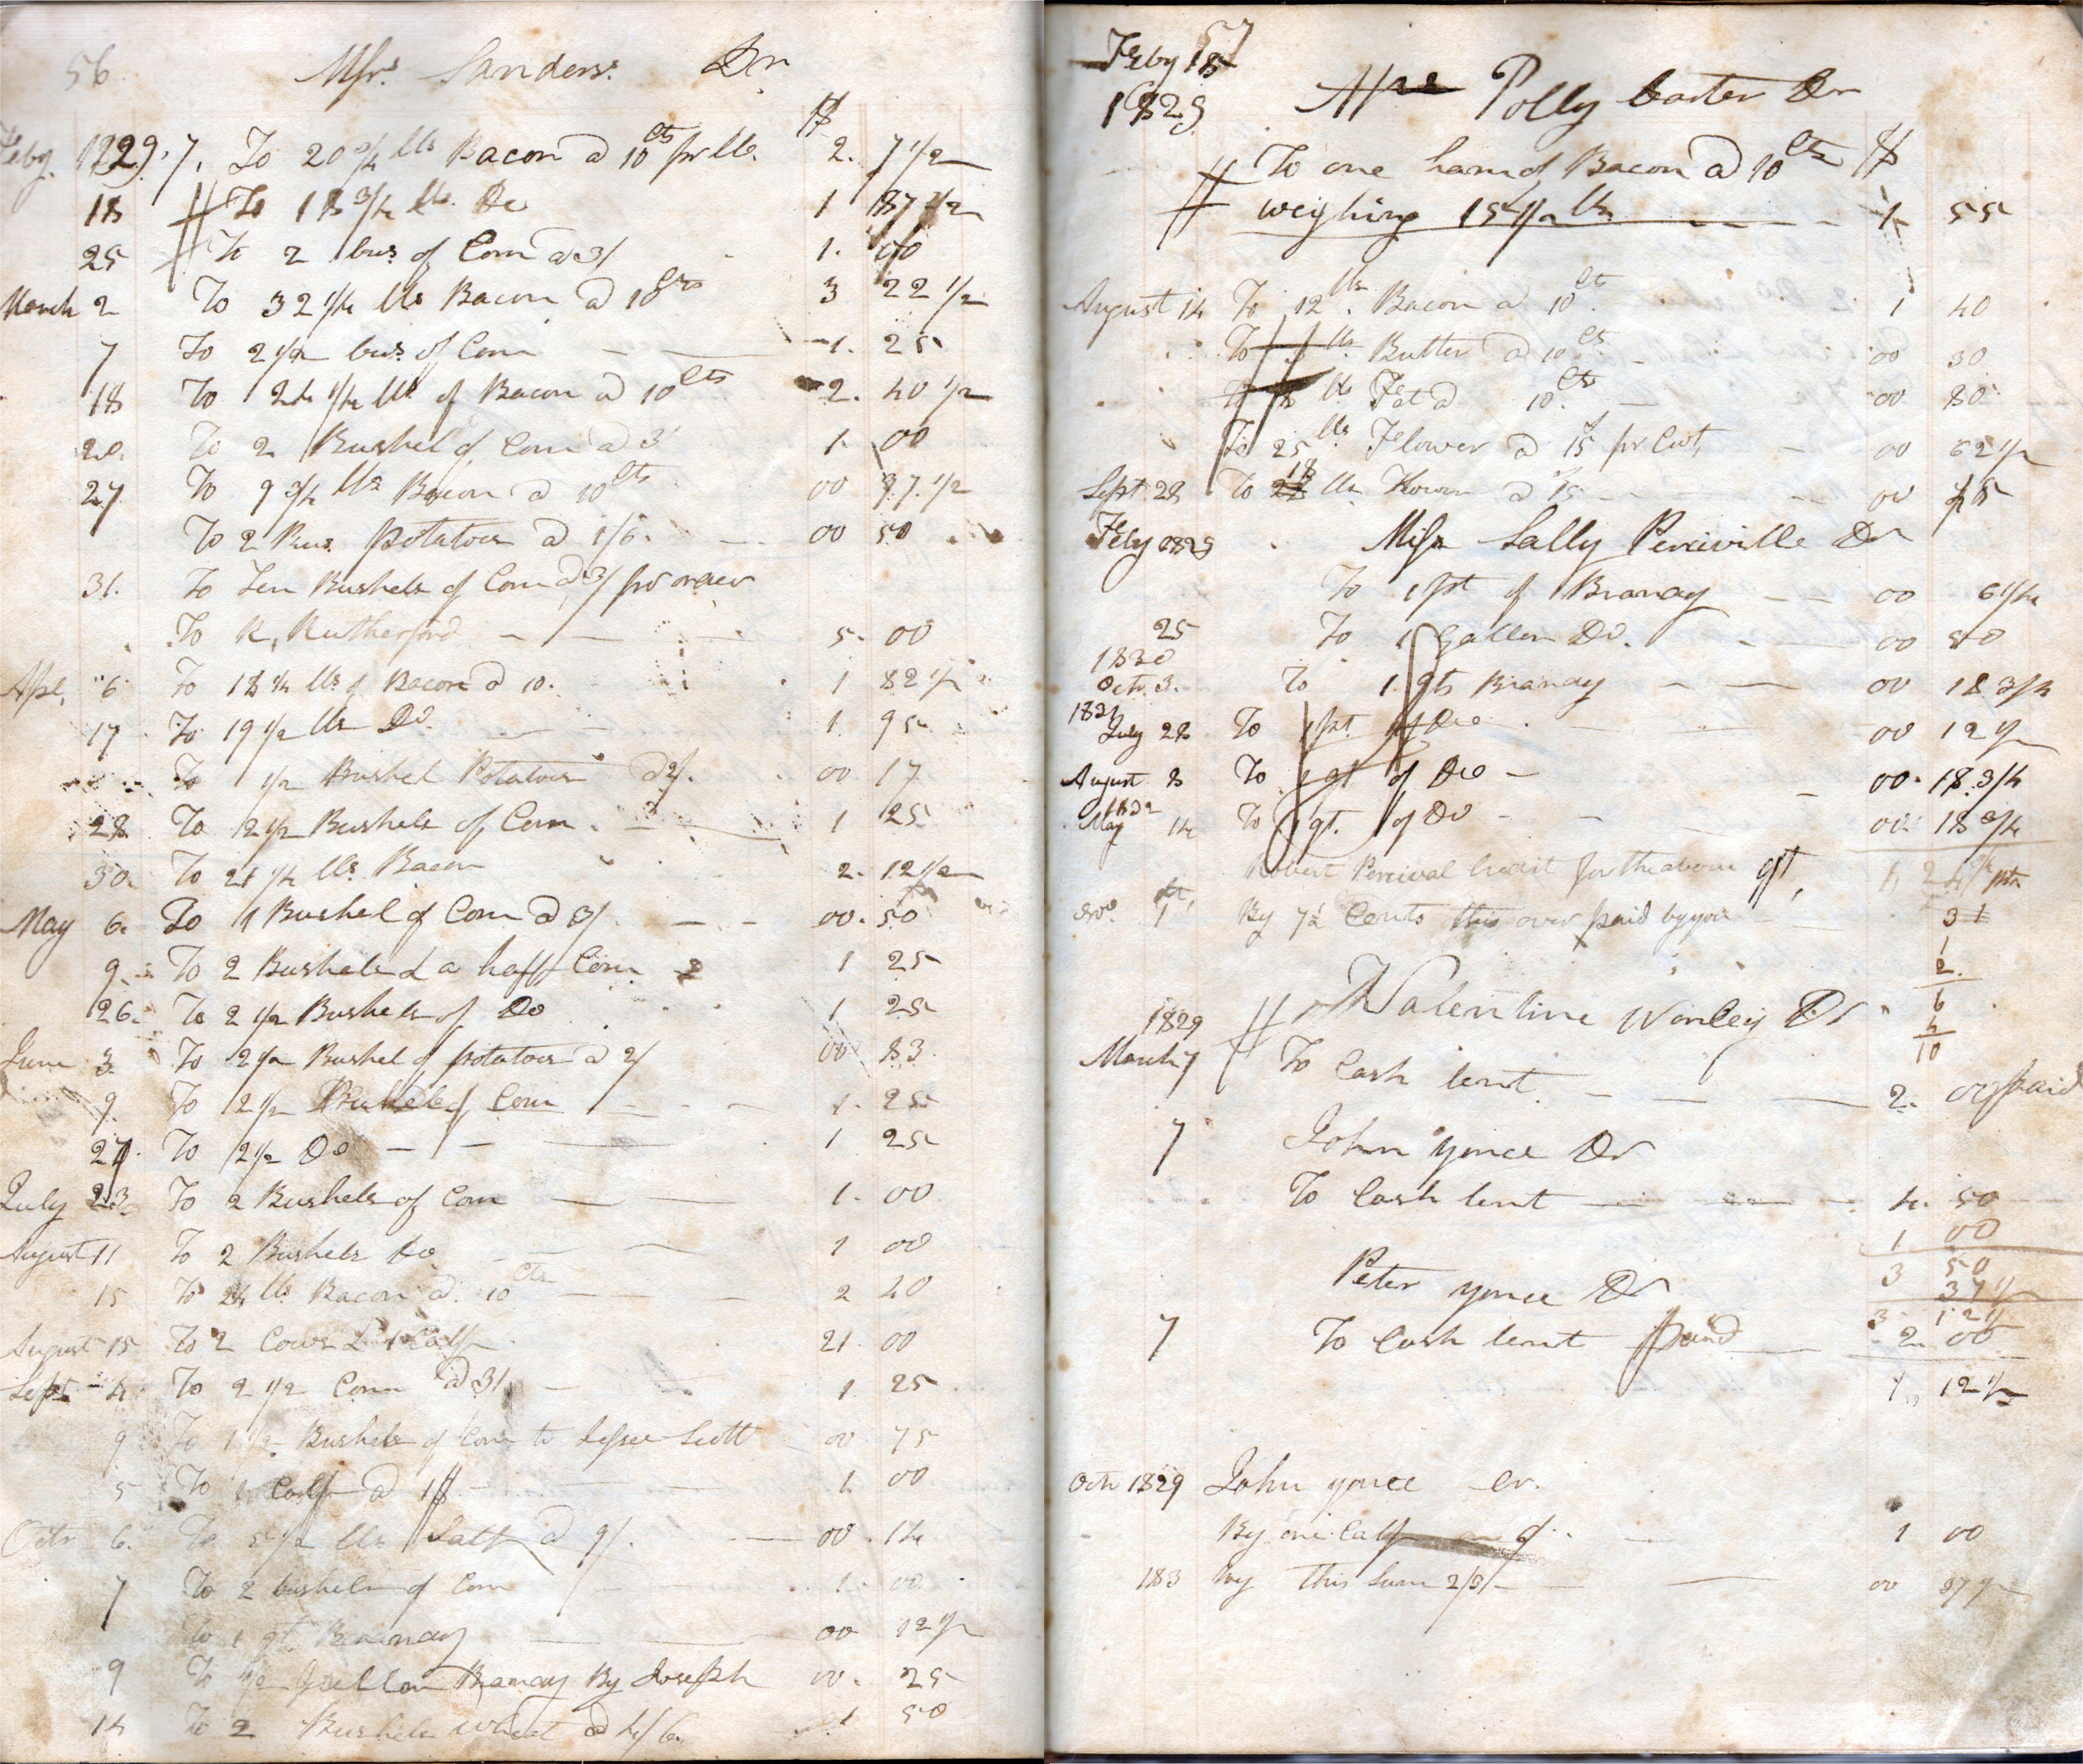 56 Mrs. Sanders. Dr
$
Feby. 1829. 7. To 20 3/4 lbs Bacon @ 10 cts pr lb. 2. 7 1/2
18 To 18 3/4 lbs. Do 1 87 1/2
25 To 2 bus of Corn @ 3/ 1. 00
March 2 To 32 1/4 lbs Bacon @ 10 cts 3 22 1/2
7 To 2 1/2 bus. of Corn — — 1. 25
18 To 24 1/4 lbs of Bacon @ 10 cts 2. 40 1/2
20. To 2 Bushel of Corn @ 3/ 1. 00
27 To 9 3/4 lbs Bacon @ 10 cts 00 97. 1/2
To 2 Bus. potatoes @ 1/6. — 00 50
31. To Ten Bushels of Corn @ 3/ pr order
To R. Rutherford — — 5. 00
Apl. 6 To 18 1/4 lbs of Bacon @ 10. 1 82 1/2
17 To 19 1/2 lbs Do. 1. 95
To 1 1/2 Bushel Potatoes @ 2/. 00 17
28 To 2 1/2 Bushels of Corn. — 1 25
30. To 21 1/4 lbs. Bacon 2. 12 1/2
May 6. To 1 Bushel of Corn @ 3/ — — 00. 50
9. To 2 Bushels & a half Corn 1 25
26. To 2 1/2 Bushels of Do 1 25
June 3. To 2 1/2 Bushel of potatoes @ 2/ 00 83
9. To 2 1/2 Bushels of Corn — — 1. 25
27. To 2 1/2 Do — — 1 25
July 23 To 2 Bushels of Corn — — 1. 00
August 11 To 2 Bushels Do — — 1 00
15 To 24 lbs Bacon @. 10 cts — — 2 40
August 15 To 2 Cows & 1 Calf 21. 00
Sept 4. To 2 1/2 Corn @ 3/ — 1. 25
9 To 1 1/2 Bushels of Corn to Jesse Scott 00 75
5 To 1 Calf @ 1$ — — 1. 00
Octr 6. To 5 1/2 lbs Salt @ 9/. — 00. 14
7 To 2 bushels of Corn 1. 00
To 1 qt. Brandy — — 00 12 1/2
9 To 1/2 Gallon Brandy By Joseph 00. 25
14 To 2 Bushels wheat @ 4/6. 1 50
57
Feby 18
1829 Mrs Polly Carter Dr
To one ham of Bacon @ 10 cts $
weighing 15 1/2 lbs — — 1 55
August 14 To 12 lbs. Bacon @ 10 cts. 1 40
To lbs. Butter @ 10 cts. — 00 30
To 8 lbs Fat @ 10. cts — 00 80
To 25 lbs Flower @ 15/ pr Cwt, — 00 62 1/2
Sept. 28 To 18 lbs Flower @ 15 — — 00 45
Feby 1829 Miss Sally Perciville Dr
To 1 Pt of Brandy — — 00 6 1/4
25 To 1 Gallon Do. — — 00 50
1830
Octr. 3. To 1 qts Brandy — — 00 18 3/4
1831
July 28 To 1 pt. of Do — 00 12 1/2
August 8 To 1 qt of Do — 00. 18. 3/4
1832
May 14 To 1 qt. of Do — — 00. 18 3/4
Robert Percival Credit for the above qt,
1 By 7 1/2 Cents this over paid by you 31
1
2.
6
4
10
1829 Valentine Worley Dr
March 7 To Cash lent. — — 2. 00 paid
7 John Yonce Dr
To Cash lent — — 4. 50
1 00
3 50
37 1/2
3 12 1/2
Peter Yonce Dr
7 To Cash lent paid — 2. 00
1, 12 1/2
Octr 1829 John Yonce Cr.
By one Calf — 1 00
183 by this Sum 2/3 — — 00 37 1/2